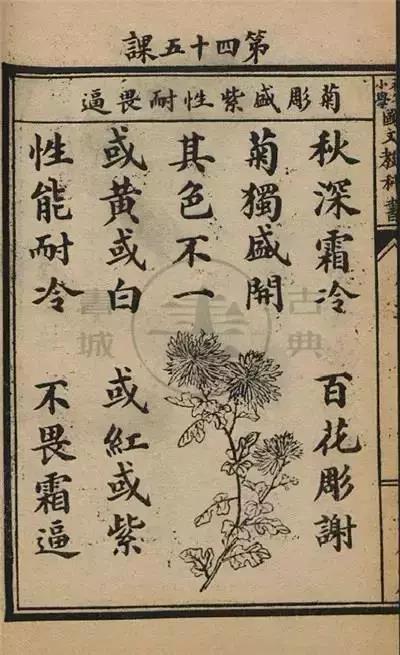 第四十五課
菊彫盛紫性耐畏逼
秋深霜冷 百花彫謝
菊獨盛開
其色不一
或黃或白 或紅或紫
性能耐冷 不畏霜逼
小學
國文教科書
古典書城